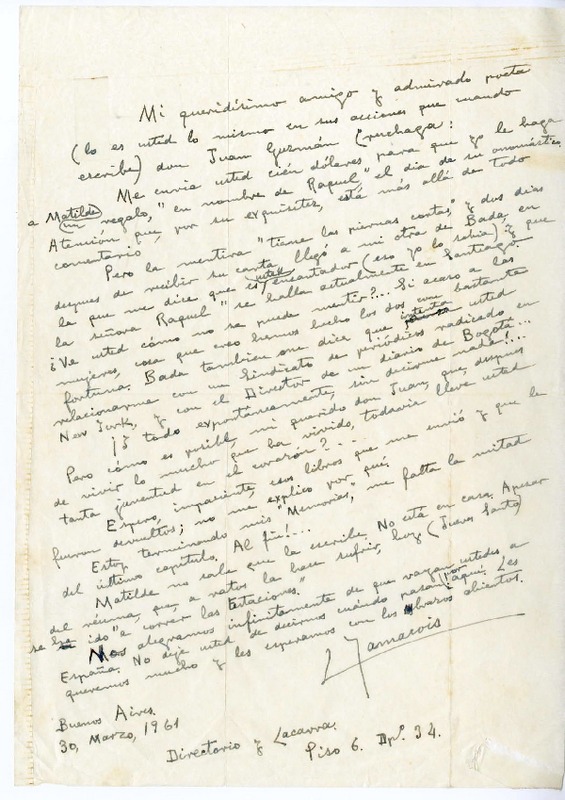 Mi queridísimo amigo y admirado poeta
(lo es usted lo mismo en sus acciones que cuando
escribe) don Juan Guzmán Cruchaga:
Me envía usted cien dólares para que yo le haga
a Matilde un regalo, "en nombre de Raquel," el día de su onomástico.
Atención que, por su exquisitez, está más allá de todo
comentario.
Pero la mentira "tiene las piernas cortas," y dos días
despues de recibir su carta llegó a mi otra de Bada, en
la que me dice que es usted encantador (eso yo lo sabía) y que
la señora Raquel "se halla actualmente en Santiago
¿Ve usted cómo no se puede mentir?... Si acaso a las
mujeres, cosa que creo hemos hecho los dos con bastante
fortuna. Bada tambien me dice que intenta usted
relacionarme con un Sindicato de periódicos radicado en
New York, y con el Director de un diario de Bogotá...
¡Y todo espontáneamente, sin decirme nada!...
Pero cómo es posible, mi querido don Juan, que, despues
de vivir lo mucho que ha vivido, todavía lleve usted
tanta juventud en el corazón?...
Espero, impaciente, esos libros que me envió y que le
fueron devueltos; no me explico por qué.
Estoy terminando mis "Memorias," me falta la mitad
del último capítulo. Al fin!...
Matilde no sabe que la escribe. No está en casa. Apesar
del réuma, que, a ratos la hace sufrir, hoy (Jueves Santo)
se ha ido "a correr las Estaciones."
Nos alegramos infinitamente de que vayan ustedes a
España. No deje usted de decirnos cuándo pasan por aquí. Les
queremos mucho y les esperamos con los brazos abiertos.
Buenos Aires.
30, Marzo, 1961
Directorio y Lacarra.
Piso 6. Dpº. 34.